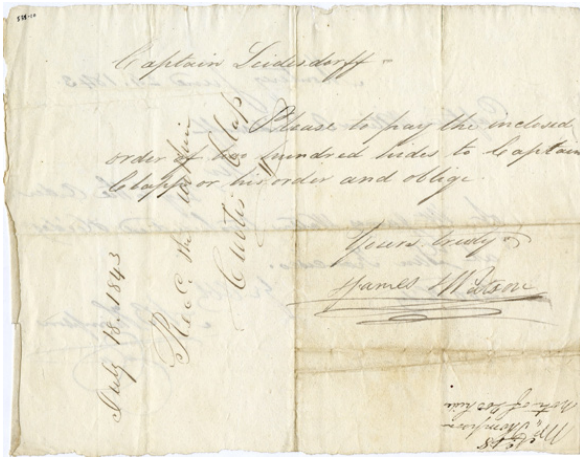 Captain Leidesdorff
Please to pay the inclosed
order of two hundred hides to Captain
Clapp or his order and oblige
Yours truly
James Watson
July 18th 1843
Rec'd the within
Curtis Clap
Mr. Thompson
note of